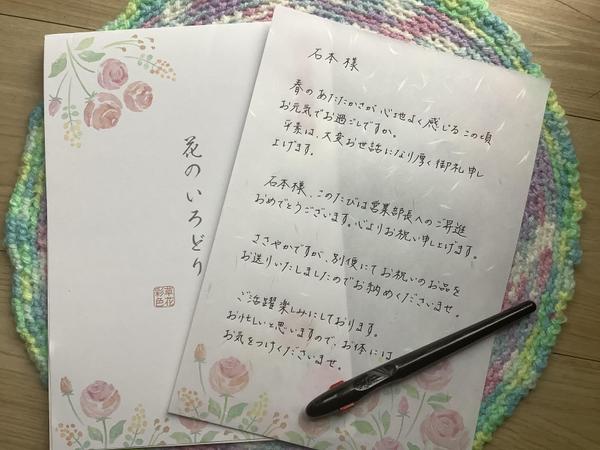 花のいろどり
草花
彩色
石本様
春のあたたかさが、心地よく感じるこの頃
お元気でお過ごしですか。
平素は、大変お世話になり厚く御礼申し
上げます。
石本様、このたびは営業部長へのご昇進
おめでとうございます。心よりお祝い申し上げます。
ささやかですが、別便にてお祝いのお品を
お送りいたしましたのでお納めくださいませ。
ご活躍楽しみにしております。
お忙しいと思いますので、お体には
お気をつけくださいませ。